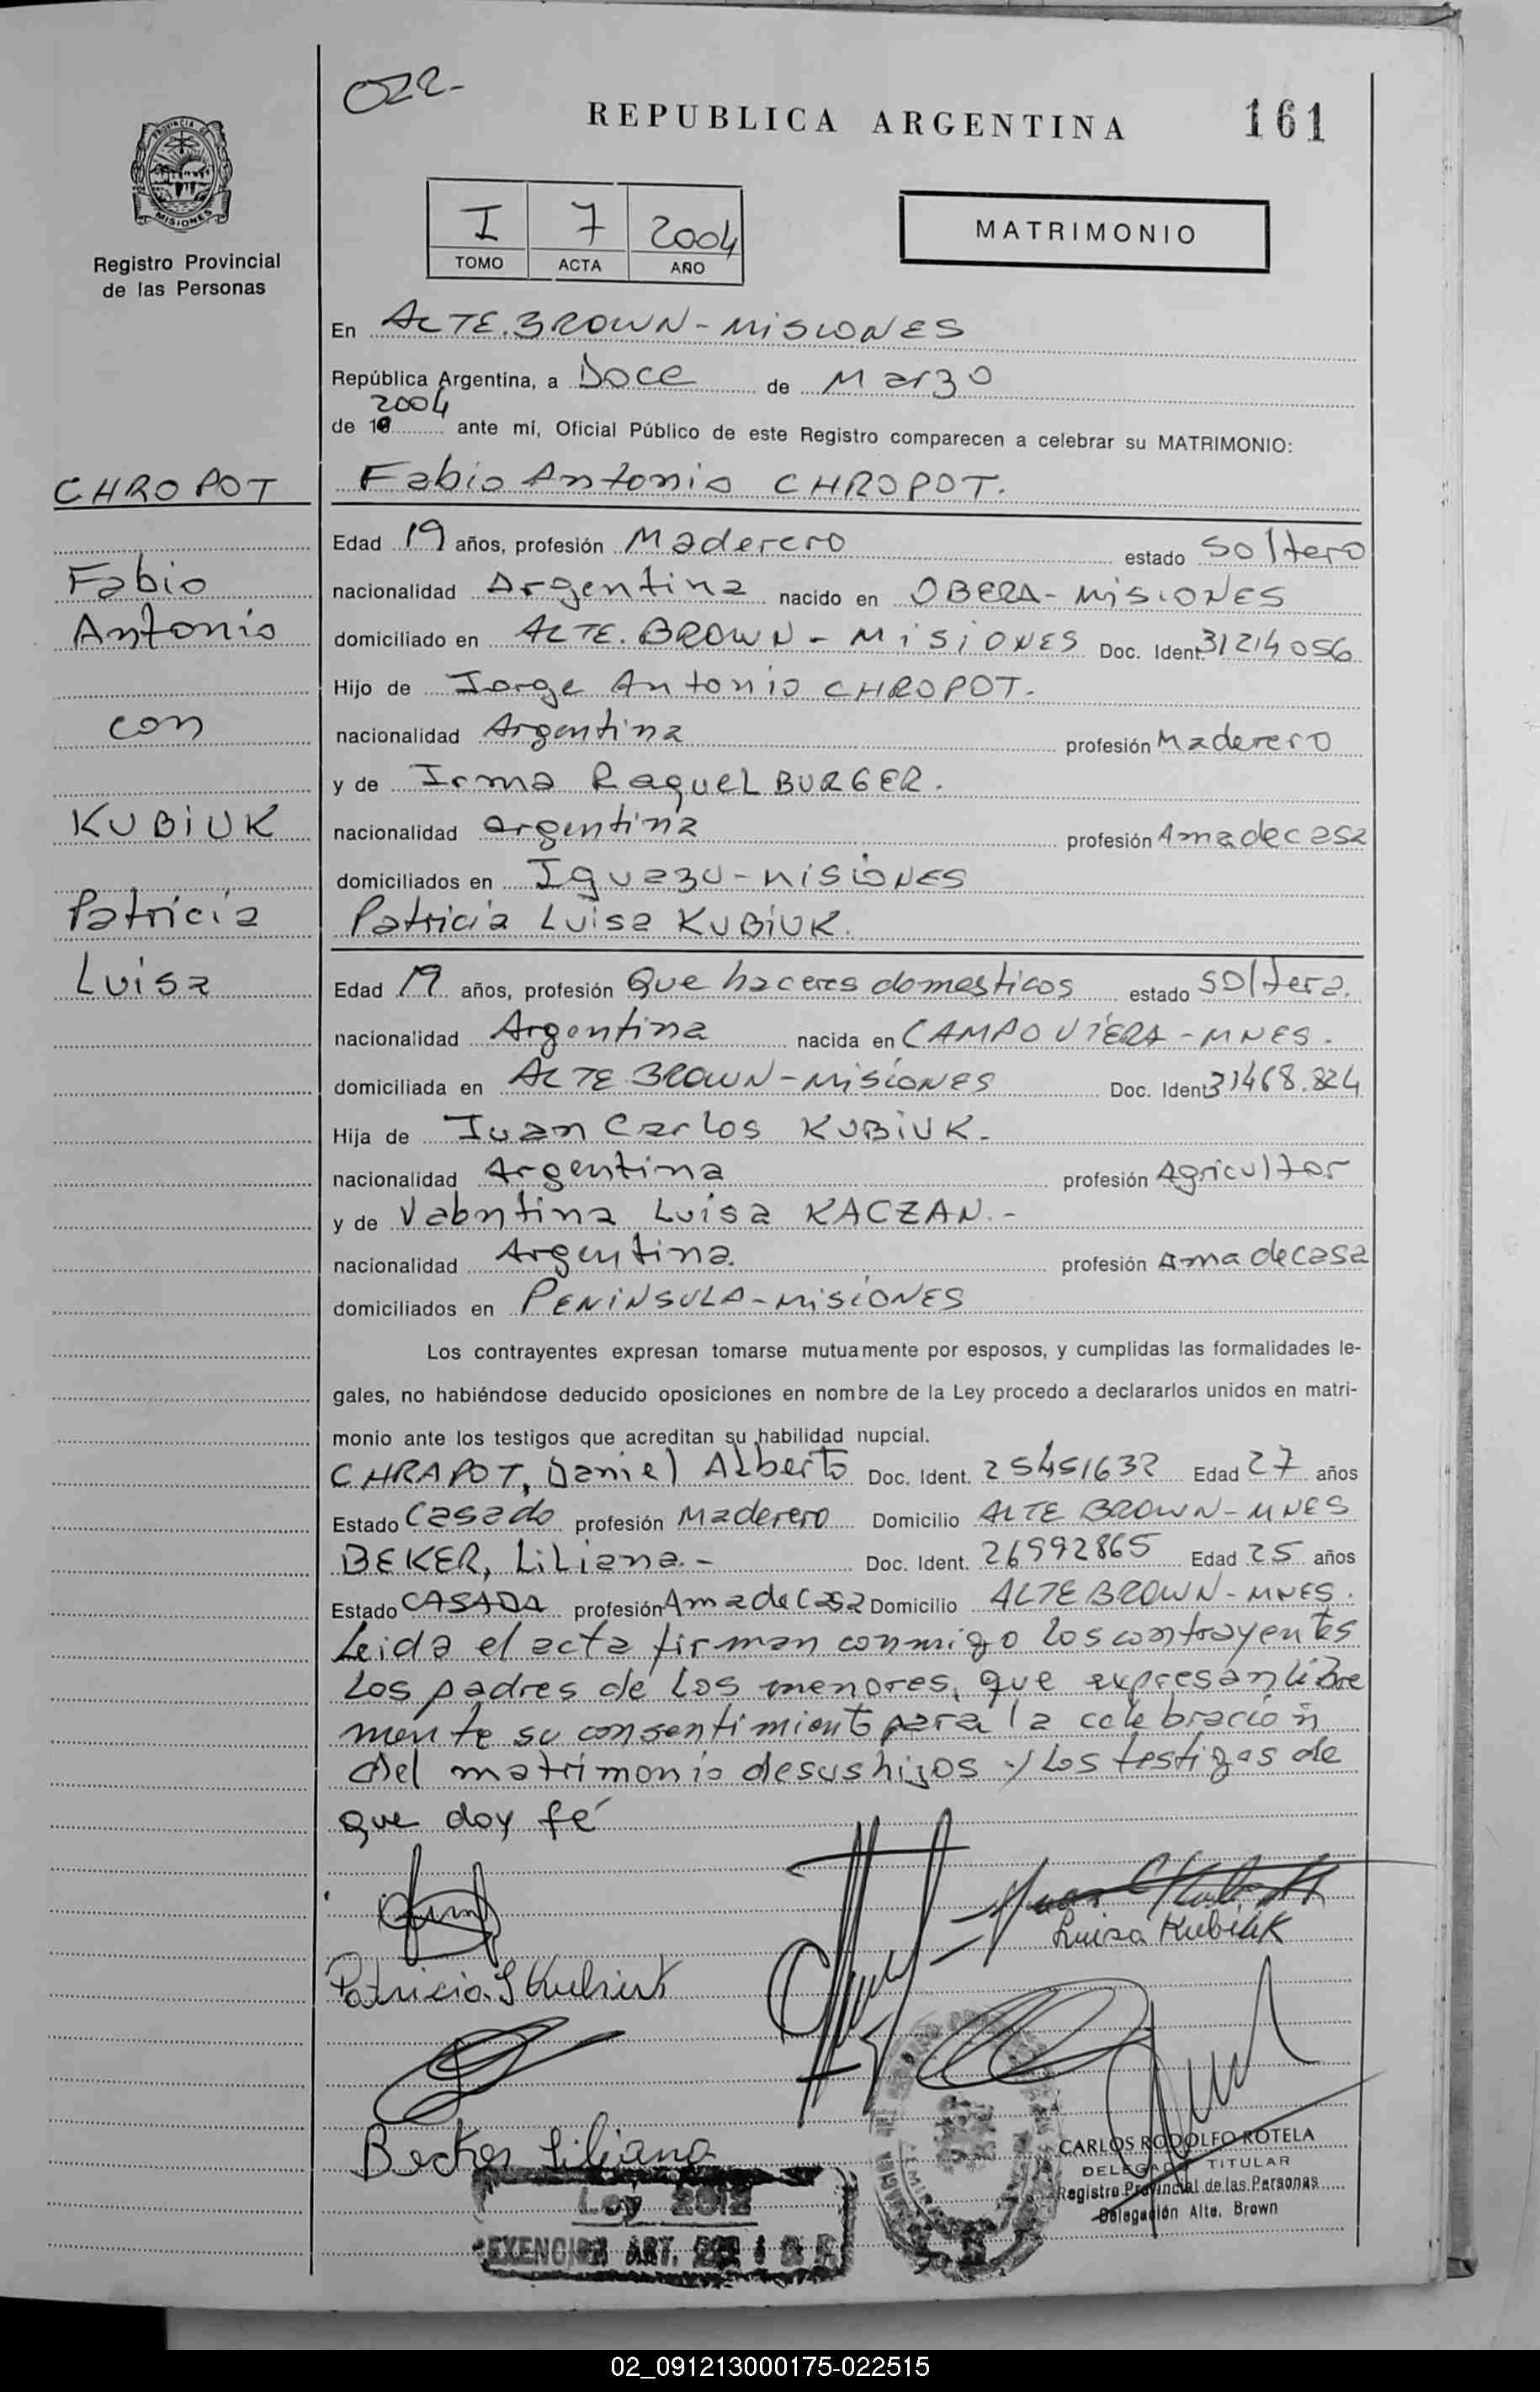 022-
REPUBLICA ARGENTINA
161
PROVINCIA DE
MISIONES
Registro Provincial
de las Personas
I 7 2004
TOMO ACTA AÑO
MATRIMONIO
En ALTE. BROWN - MISIONES
República Argentina, a Doce de Marzo
2004
de 19 ante mí, Oficial Público de este Registro comparecen a celebrar su MATRIMONIO:
CHROPOT
Fabio Antonio CHROPOT.
Edad 19 años, profesión Maderero estado Soltero
Fabio
nacionalidad Argentina nacido en OBERA - MISIONES
Antonio
domiciliado en ALTE. BROWN - MISIONES Doc. Ident. 31214056
Hijo de Jorge Antonio CHROPOT.
con
nacionalidad Argentina profesión Maderero
y de Irma Raquel BURGER.
KUBIUK
nacionalidad argentina profesión Ama de casa
domiciliados en Iguazu - MISIONES
Patricia
Patricia Luisa KUBIUK.
Luisa
Edad 19 años, profesión Que haceres domesticos estado Soltera.
nacionalidad Argentina nacida en CAMPO VIERA - MNES.
domiciliada en ALTE BROWN - MISIONES Doc. Ident 31468.824
Hija de Juan Carlos KUBIUK -
nacionalidad Argentina profesión Agricultor
y de Valentina Luisa KACZAN. -
nacionalidad Argentina. profesión Ama de casa
domiciliados en PENINSULA - MISIONES
Los contrayentes expresan tomarse mutuamente por esposos, y cumplidas las formalidades le-
gales, no habiéndose deducido oposiciones en nombre de la Ley procedo a declararlos unidos en matri-
monio ante los testigos que acreditan su habilidad nupcial.
CHRAPOT, Daniel Alberto Doc. Ident. 25451632 Edad 27 años
Estado Casado profesión Maderero Domicilio ALTE BROWN - MNES
BEKER, Liliana. - Doc. Ident. 26992865 Edad 25 años
Estado CASADA profesión Ama de Casa Domicilio ALTE BROWN - MNES.
Leida el acta firman conmigo los contrayentes
Los padres de los menores, que expresan libre
mente su consentimiento para la celebración
del matrimonio de sus hijos y los testigos de
que doy fé
Luisa Kubiuk
Patricia L Kubiuk
Becker Liliana
CARLOS RODOLFO ROTELA
DELEGADO TITULAR
Registro Provincial de las Personas
Delegación Alte. Brown
Ley 2812
EXENCION ART.
02_091213000175-022515